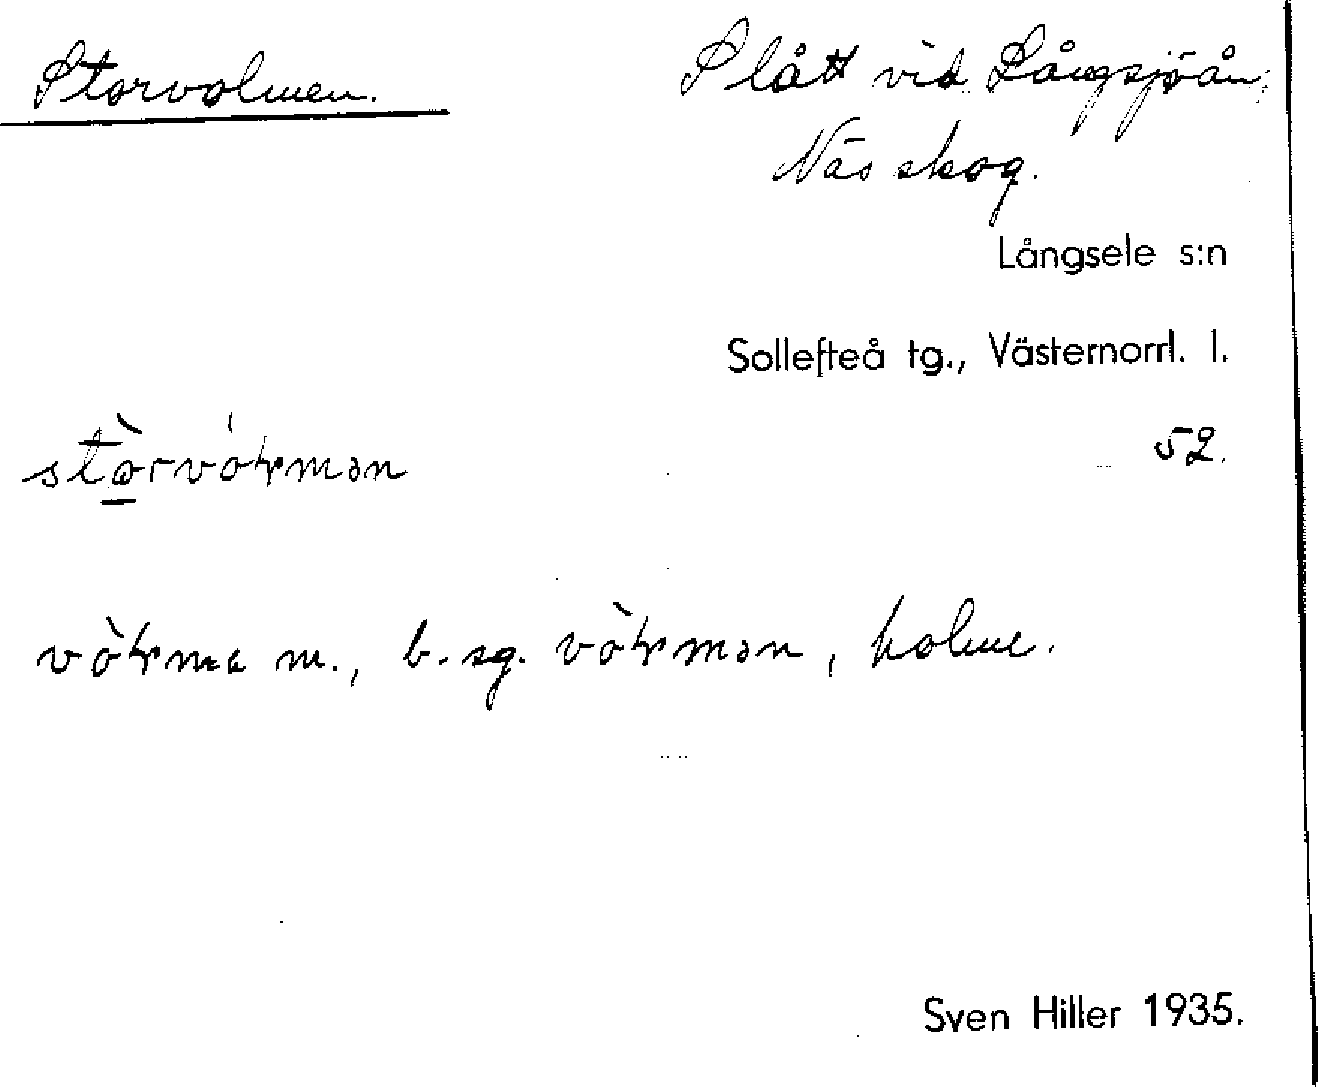 Storvolmen.
Slått vid Långsjöån,
Näs skog.
Långsele s:n
Sollefteå tg., Västernorrl. l.
52.
m., b. sg. , holme.
Sven Hiller 1935.